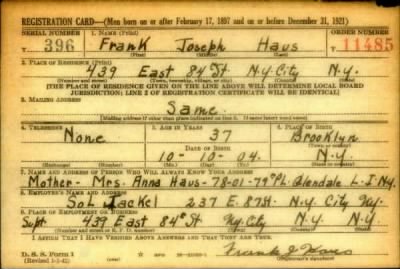 REGISTRATION CARD—(Men born on or after February 17, 1897 and on or before December 31, 1921)
SERIAL NUMBER 1. NAME (Print) ORDER NUMBER
T 396 Frank Joseph Haus T 11485
(First) (Middle) (Last)
2. PLACE OF RESIDENCE (Print)
439 East 84 St N.Y. City N.Y.
(Number and street) (Town, township, village, or city) (County) (State)
[THE PLACE OF RESIDENCE GIVEN ON THE LINE ABOVE WILL DETERMINE LOCAL BOARD
JURISDICTION; LINE 2 OF REGISTRATION CERTIFICATE WILL BE IDENTICAL]
3. MAILING ADDRESS
Same
[Mailing address if other than place indicated on line 2. If same insert word same]
4. TELEPHONE 5. AGE IN YEARS 6. PLACE OF BIRTH
None 37 Brooklyn
DATE OF BIRTH (Town or county)
10-10-04. N.Y.
(Exchange) (Number) (Mo.) (Day) (Yr.) (State or country)
7. NAME AND ADDRESS OF PERSON WHO WILL ALWAYS KNOW YOUR ADDRESS
Mother - Mrs. Anna Haus - 78-01-79th Pl. Glendale L-I-NY
8. EMPLOYER'S NAME AND ADDRESS
Sol Jackel 237 E. 87 St. N.Y. City NY.
9. PLACE OF EMPLOYMENT OR BUSINESS
Supt 439 East 84th St Ny City N.Y.
(Number and street or R. F. D. number) (Town) (County) (State)
I AFFIRM THAT I HAVE VERIFIED ABOVE ANSWERS AND THAT THEY ARE TRUE.
D. S. S. Form 1
(Revised 1-1-42) GPO Frank J Haus
(Registrant's signature)